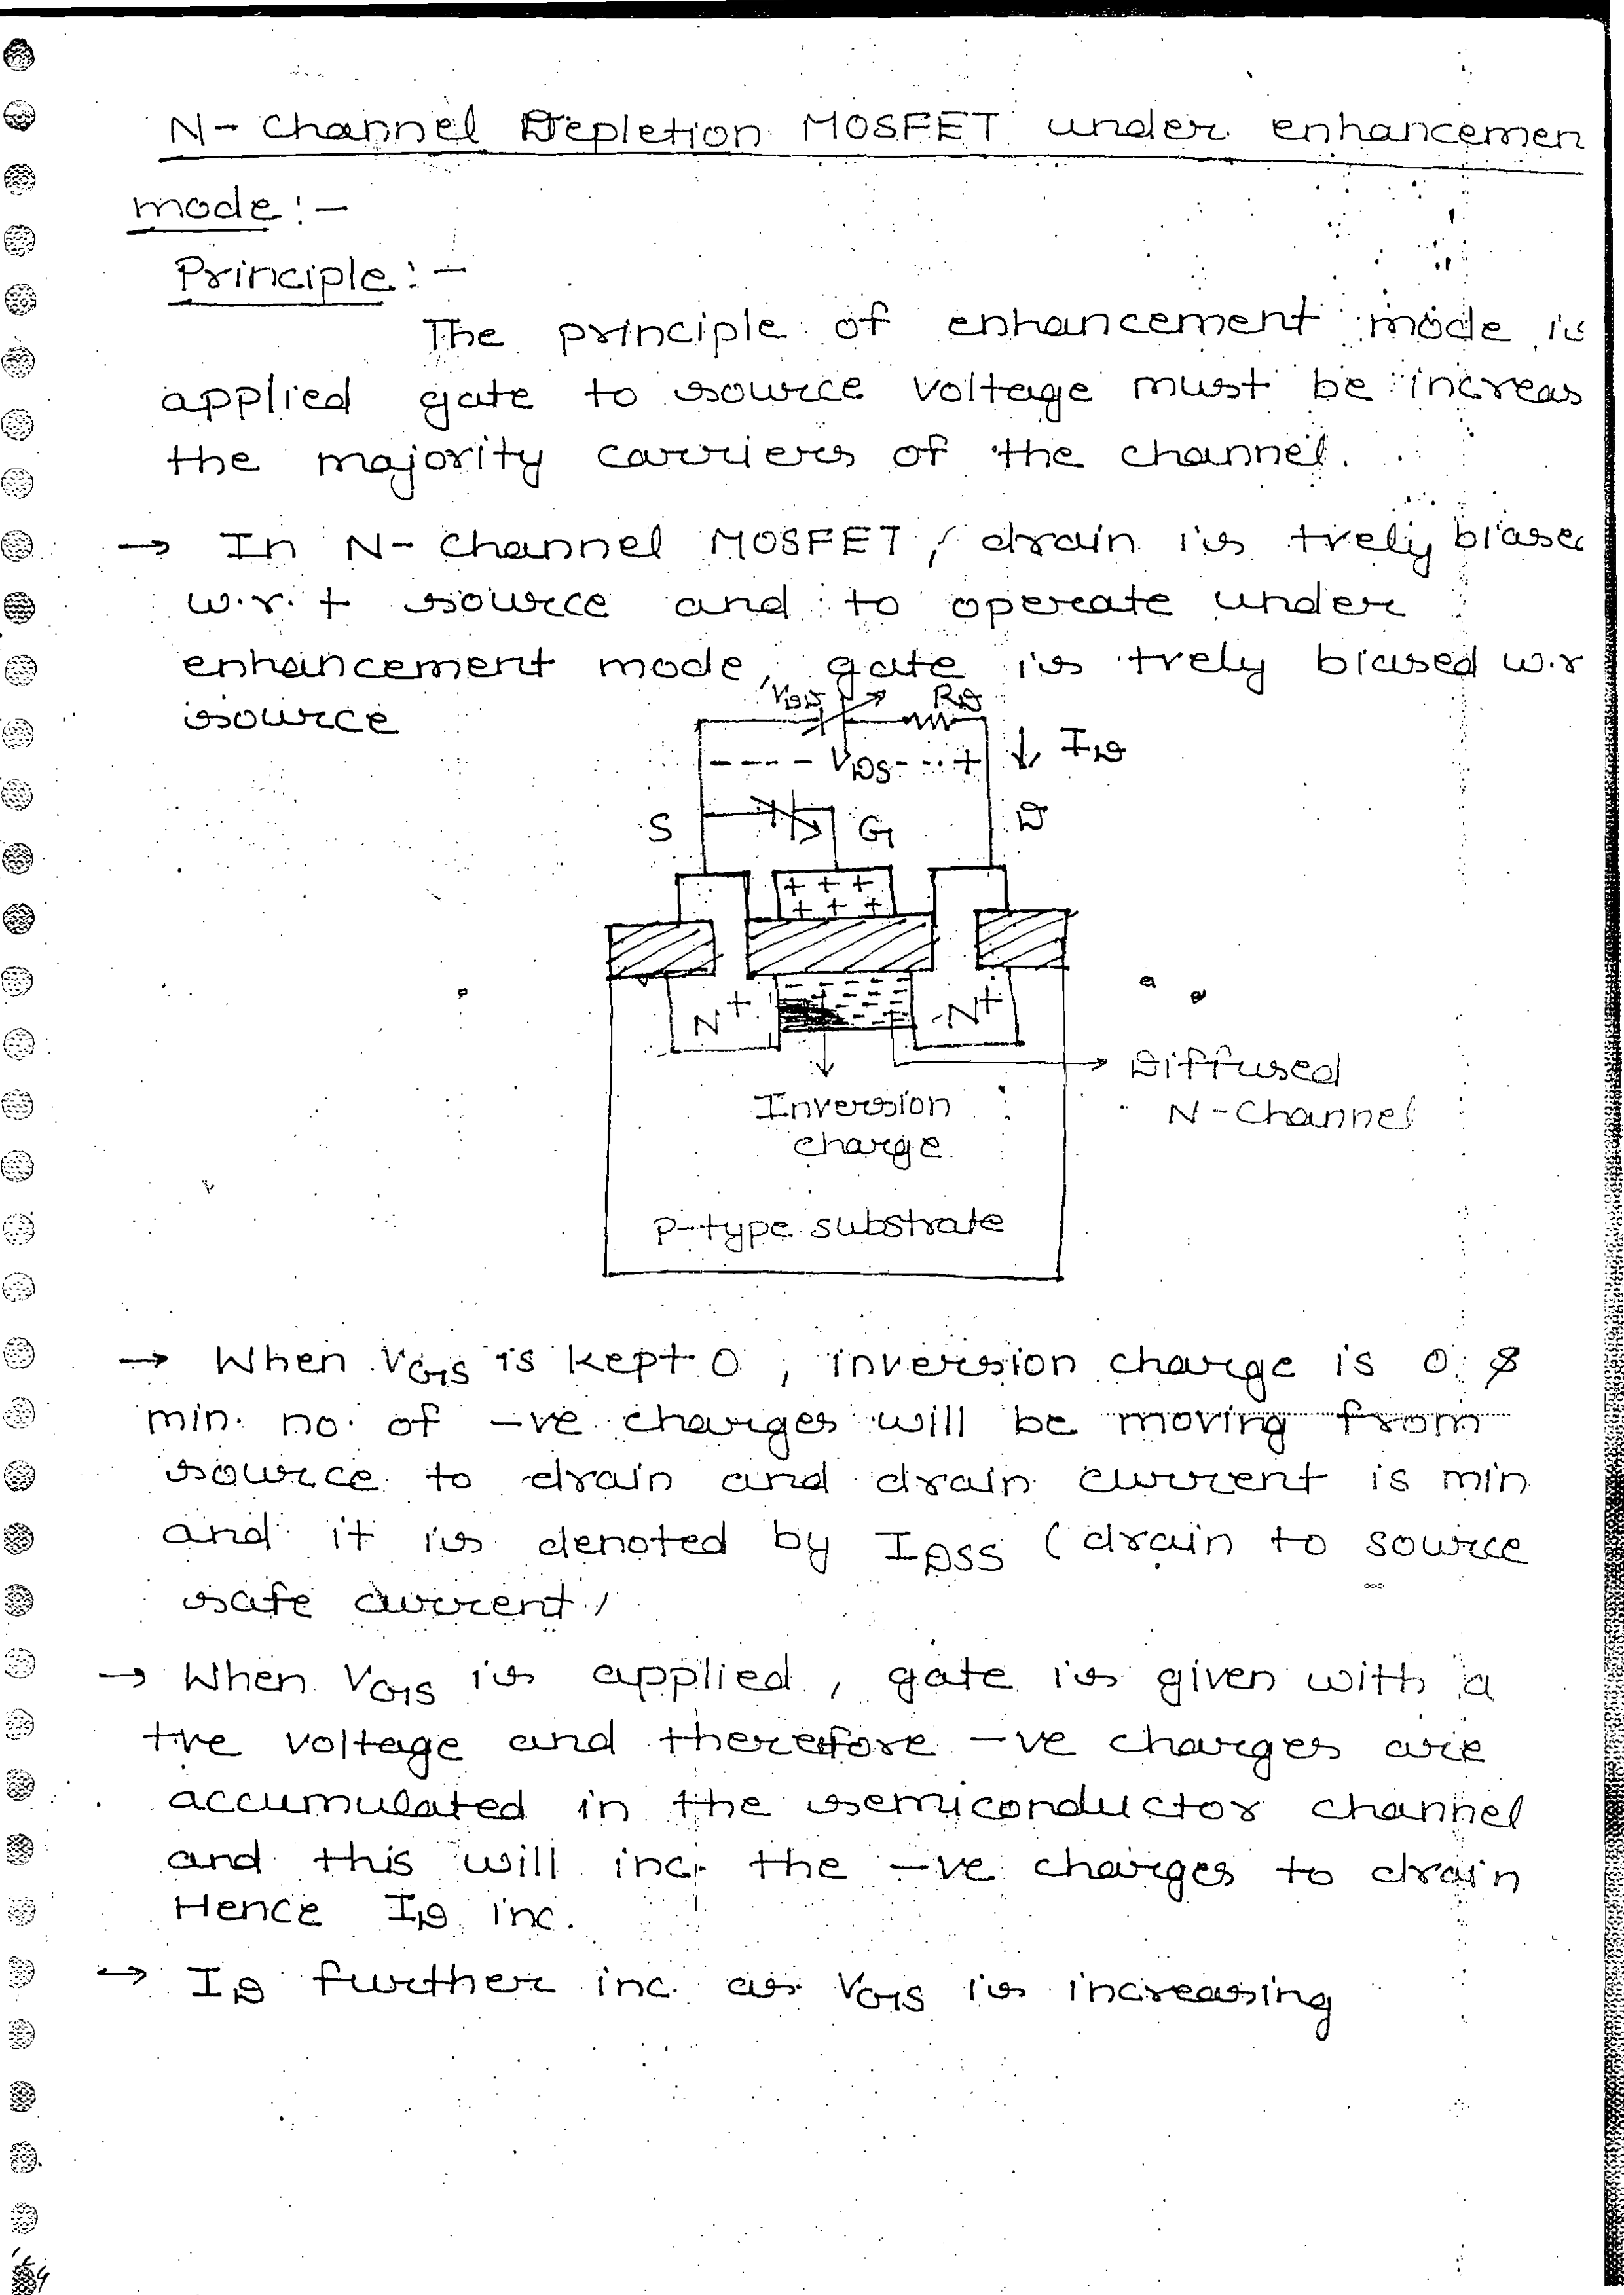 N- Channel Depletion MOSFET under enhancemen
mode :-
Principle :-
The principle of enhancement mode is
applied gate to source voltage must be increas
the majority carriers of the channel.
→ In N- Channel MOSFET, drain is +vely biase
w.r.t source and to operate under
enhancement mode, gate is +vely biased w.r
source
VDD RD
- - - - - VDS - - .. + ↓ ID
S G D
+ + +
+ + +
N+ N+
→ Diffused
N-Channel
Inversion
charge.
P-type substrate
→ When VGS is kept 0, inversion charge is 0 &
min. no. of -ve charges will be moving from
source to drain and drain current is min
and it is denoted by IDSS (drain to source
safe current)
→ When VGS is applied, gate is given with a
+ve voltage and therefore -ve charges are
accumulated in the semiconductor channel
and this will inc. the -ve charges to drain
Hence ID inc.
→ ID further inc. as VGS is increasing